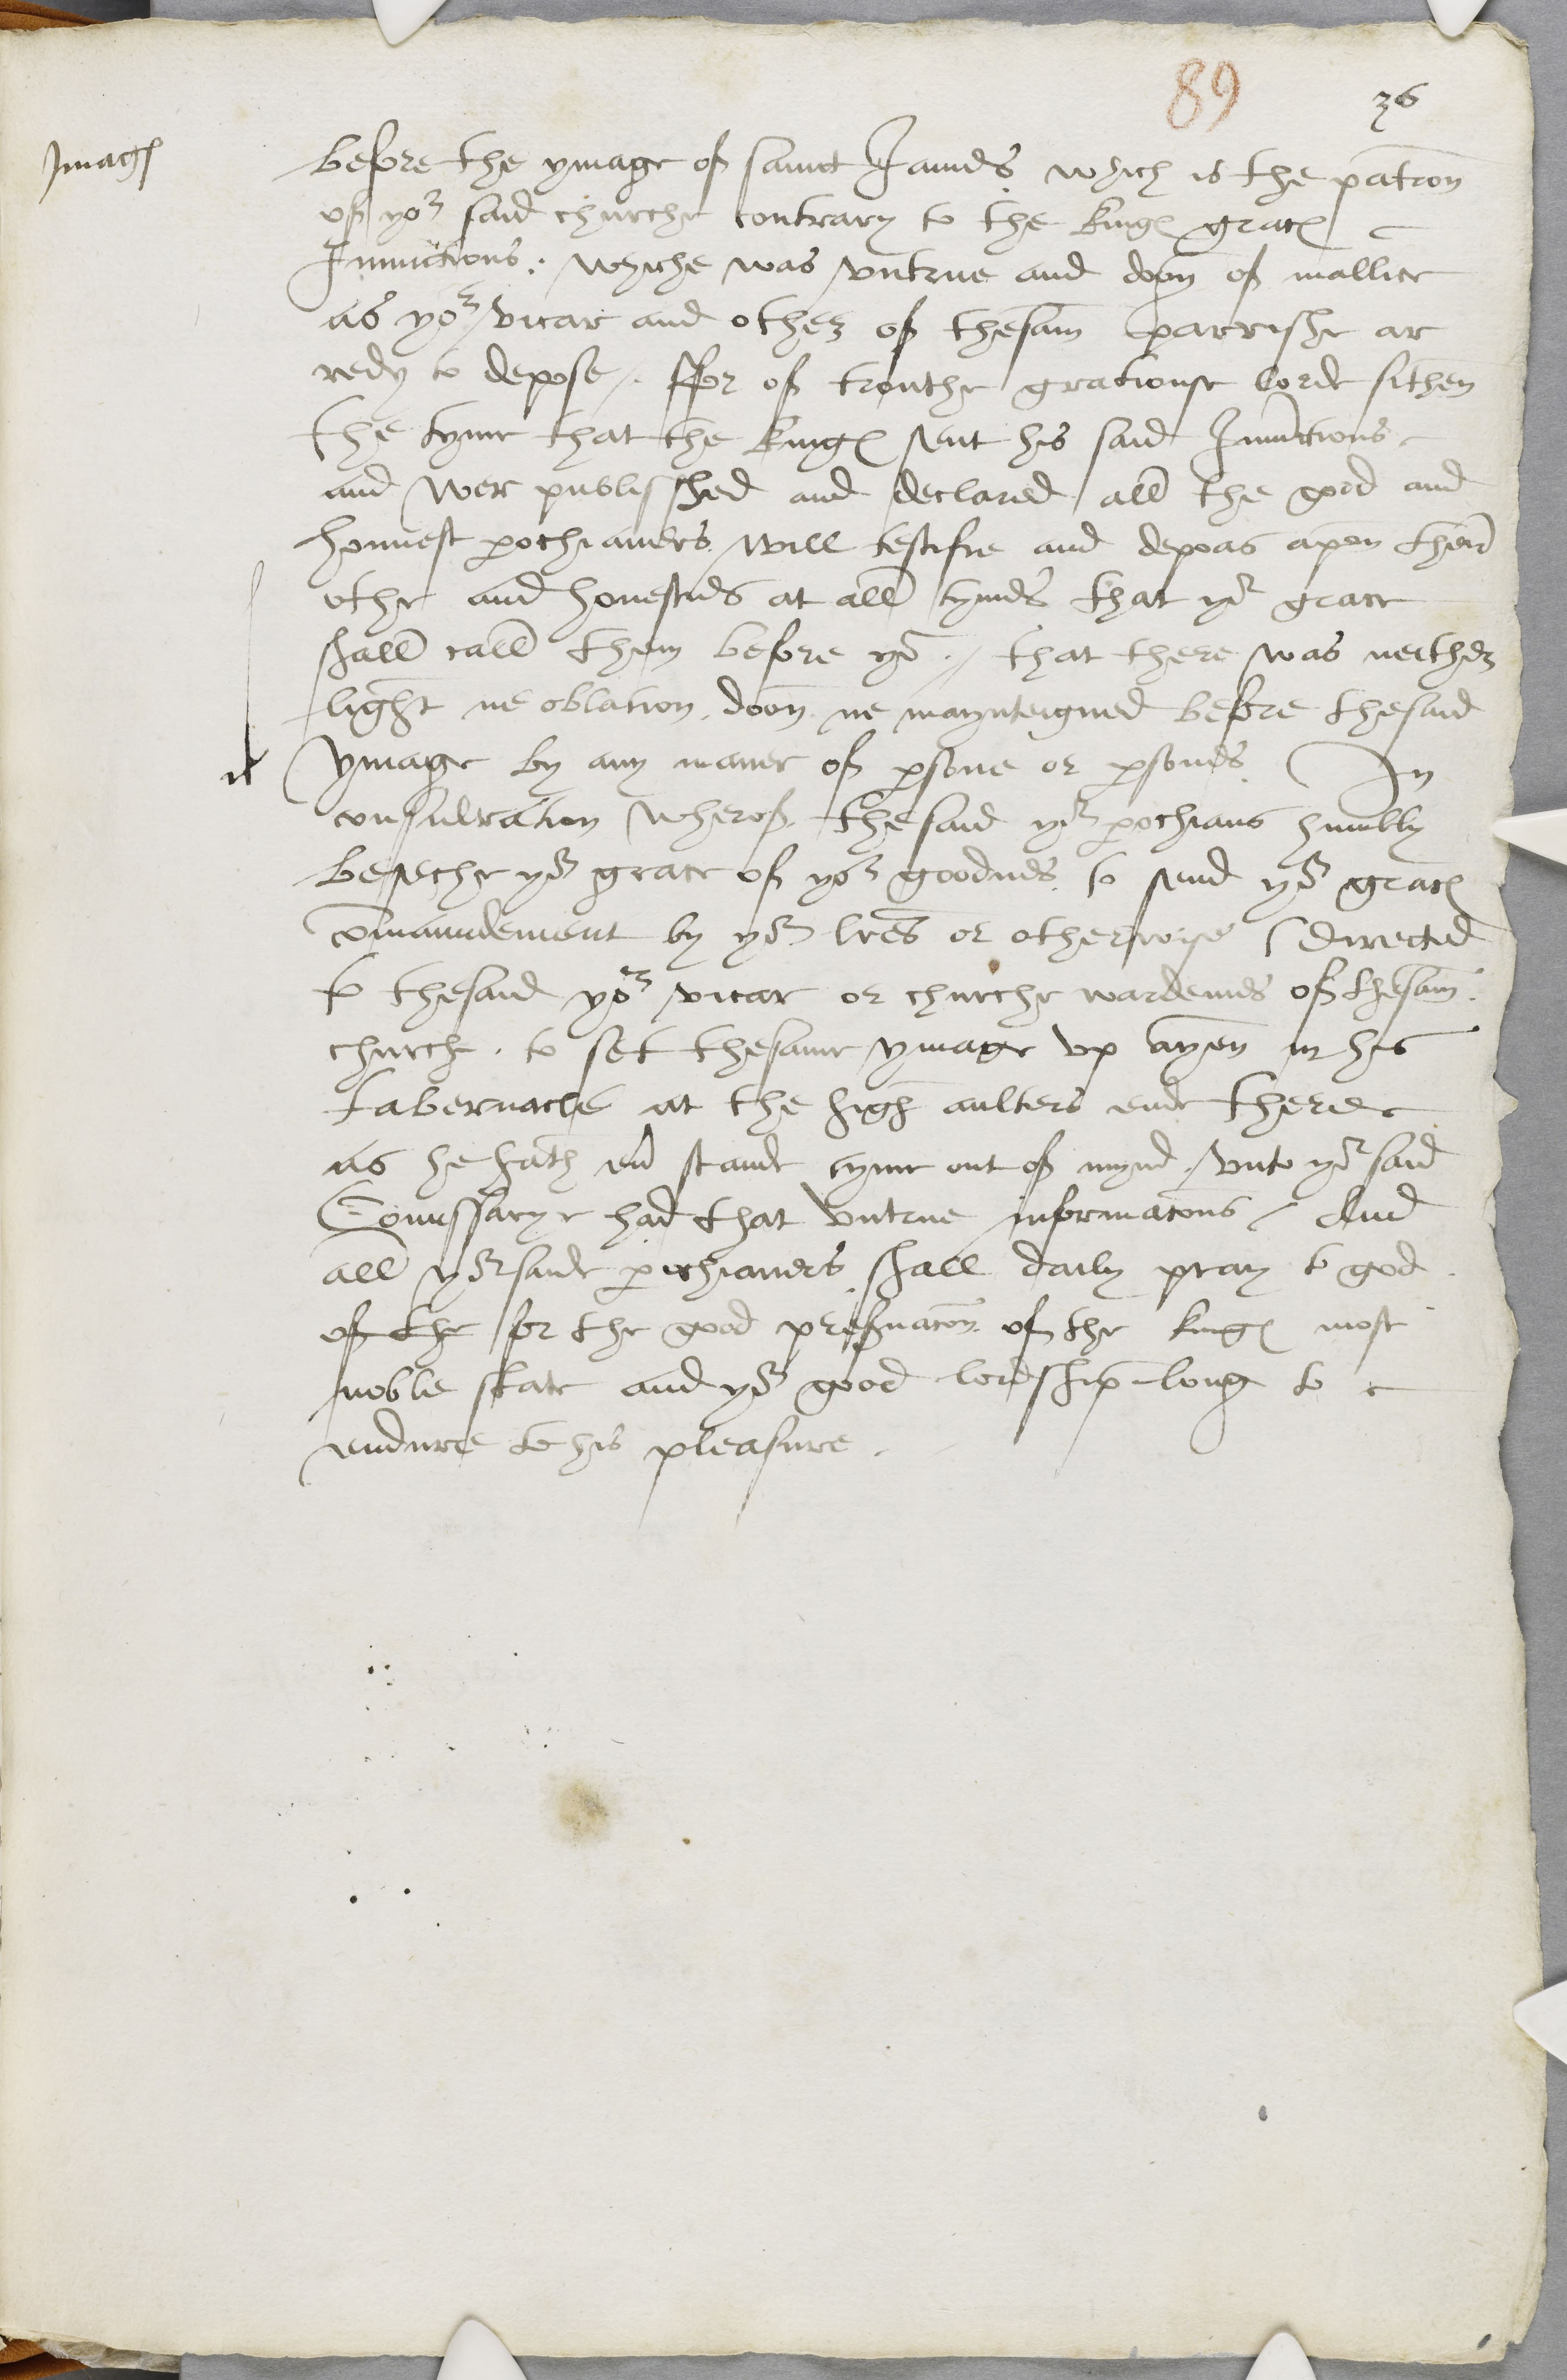 89
36
Imag[es]
before the ymage of sainct Jamis which is the patron
of yor said churche contrary to the king[es] grac[es]
Iniunctions. whiche was vntrue and doon of mallice
as yor vicar and other of thesam parrishe ar
redy to depose. ffor of trouthe graciouse lorde sithen
the tyme that the king[es] sent his said Iniunctions
and wer publisshed and declared all the good and
honnest pochianers will testifie and depoas apon their
othe and honesties at all tymes that yor grace
shall call them before yo. that there was neither
light ne oblacion doon ne maynteigned before thesaid
ymage by any maner of psone or psones In
consideracion wherof thesaid yor pochians humbly
beseche yor grace of yor goodnes to send yor grac[es]
comaundement by yor lres or otherwise directed
to thesaid yor vicar or churche wardennes of thesam
churche. to set thesame ymage vp ayen in his
tabernacle at the high aulters ende there
as he hath eu stande tyme out of mynd vnto yor said
Comissarye had that vntrue informacons And
all yor saide pochianers shall daily pray to god
of the for the good preseruacon of the king[es] most
noble state and yor good lordship long to
endure to his pleasure.